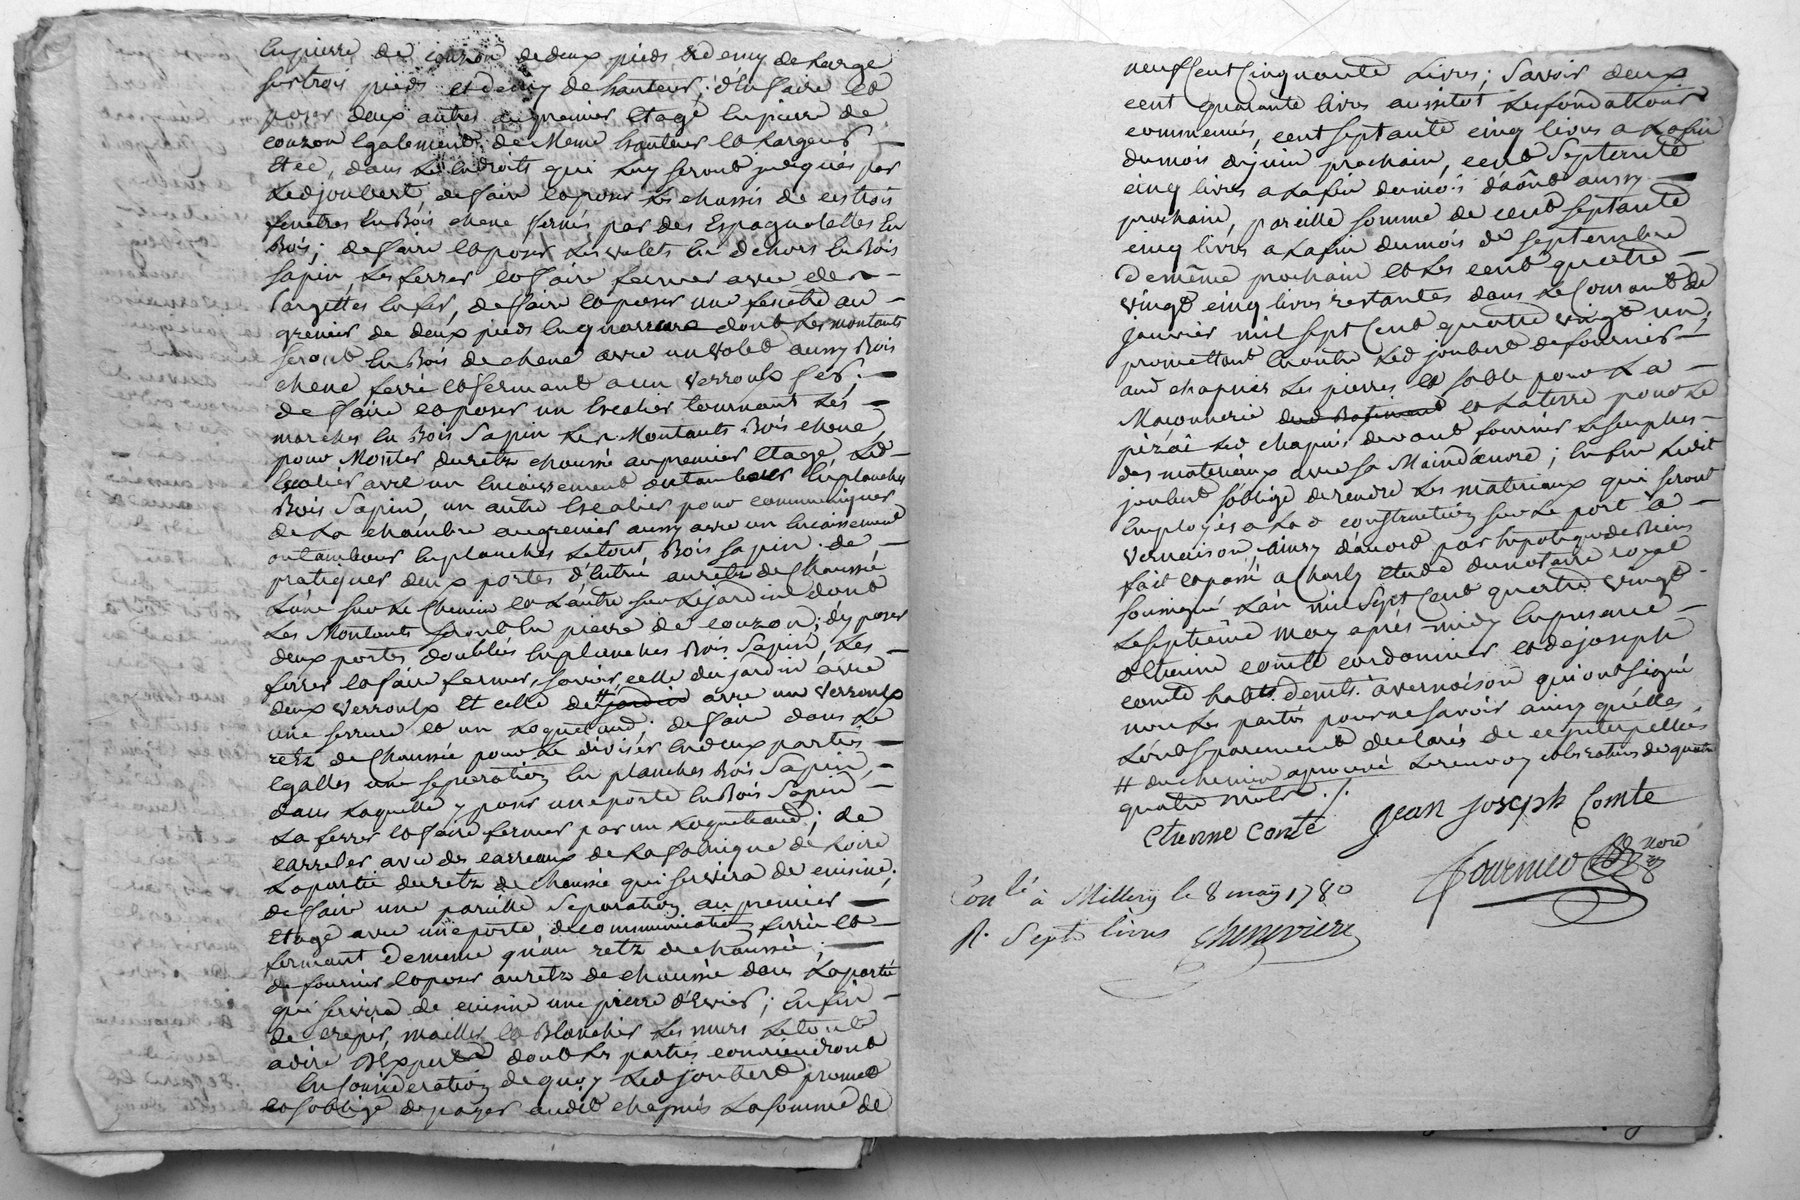 En pierre de couzon de deux pieds et demy de Large
sur trois pieds et demy de hauteur; d'En faire et
poser deux autres au premier Etage En pierre de
couzon Egalement de Meme hauteur et Largeur —
Etce, dans Les Endroits qui Luy seront indiqués par
Led joubert, de faire et poser Les chassis de ces trois
fenetres En Bois chene fermés par des Espagnolettes En
Bois; de faire et poser Les volets En dehors En Bois
sapin, Les ferrer et faire fermer avec des —
Targettes En fer, de faire et poser une fenetre au —
grenier de deux pieds En quarrure dont Les montants
seront En Bois de chene avec un volet aussy Bois
chene ferré et fermant a un verrouls fer; —
de faire et poser un Escalier tournant Les —
marches En Bois Sapin Les Montants Bois chene,
pour Monter du retz chaussé au premier Etage, Led —
Escalier avec un Encaissement ou tambour En planches
Bois Sapin, un autre Escalier pour communiquer
de La chambre au grenier aussy avec un Encaissement
ou tambour En planches Le tout Bois sapin. de —
pratiquer deux portes d'Entrée au retz de Chaussé
L'une sur Le Chemin et L'autre sur Le jardin dont
Les Montants seront En pierre de couzon; d'y poser
deux portes doublées En planches Bois Sapin, Les —
ferrer et faire fermer, savoir, celle du jardin avec
deux verrouls Et celle de # jardin avec un verrouls
une serrure et un Loquetaud; de faire dans Le
retz de Chaussée pour Le diviser En deux parties —
Egalles une separation En planches Bois Sapin, —
dans Laquelle y poser une porte En Bois Sapin —
La ferrer et faire fermer par un Loquetaud; de
carreler avec des carreaux de La fabrique de Loire
La partie du retz de Chaussé qui servira de cuisine;
de faire une pareille Separation au premier —
Etage avec une porte de communication ferrée et —
fermant de meme qu'au retz de chaussée; —
de fournir et poser au retz de chaussée dans La partie
qui servira de cuisine une pierre d'Evier; Enfin —
de creper, mailler et Blanchir Les murs Le tout
a dire d'Expert dont Les parties conviendront
En Consideration de quoy Led joubert promet
et s'oblige de payer audit chapuis La somme de
neuf Cent Cinquante Livres; Savoir deux
cent quarante livres aussitot Les fondations
commencées, cent septante cinq livres a La fin
du mois de juin prochain, cent Septente
cinq livres a La fin du mois d'aôut aussy —
prochain, pareille somme de cent septante
cinq livres a La fin du mois de septembre
de même prochain et Les cent quatre —
vingt cinq livres restantes dans Le Courant de
janvier mil sept Cent quatre vingt un,
promettant En outre Led joubert de fournir —
aud chapuis Les pierres et sable pour La —
Maçonnerie dud Batiment et La terre pour Le
pizai Led chapuis devant fournir Le surplus —
des materiaux avec sa Maindœuvre; Enfin Ledit
joubert s'oblige de rendre Les materiaux qui seront
Employés a Lad construction sur Le port a —
vernaison, ainsy d'accord par hypoteque de Biens
fait et passé a Charly Etude du notaire royal
soussigné L'an mil Sept Cent quatre vingt
Le septième may apres midy En presence —
d'Etienne comte cordonnier et de joseph
comte habts demts. a vernaison qui ont signé
non Les parties pour ne savoir ainsy qu'elles
L'ont separement declarés de ce interpellées
# du chemin aprouvé Le renvoy et Les ratures de quatre
quatre mots ./.
Etienne Conte Jean Joseph Comte
Fournier Nore
Conlé à Millery le 8 maÿ 1780
R. Sept livres Chenevière